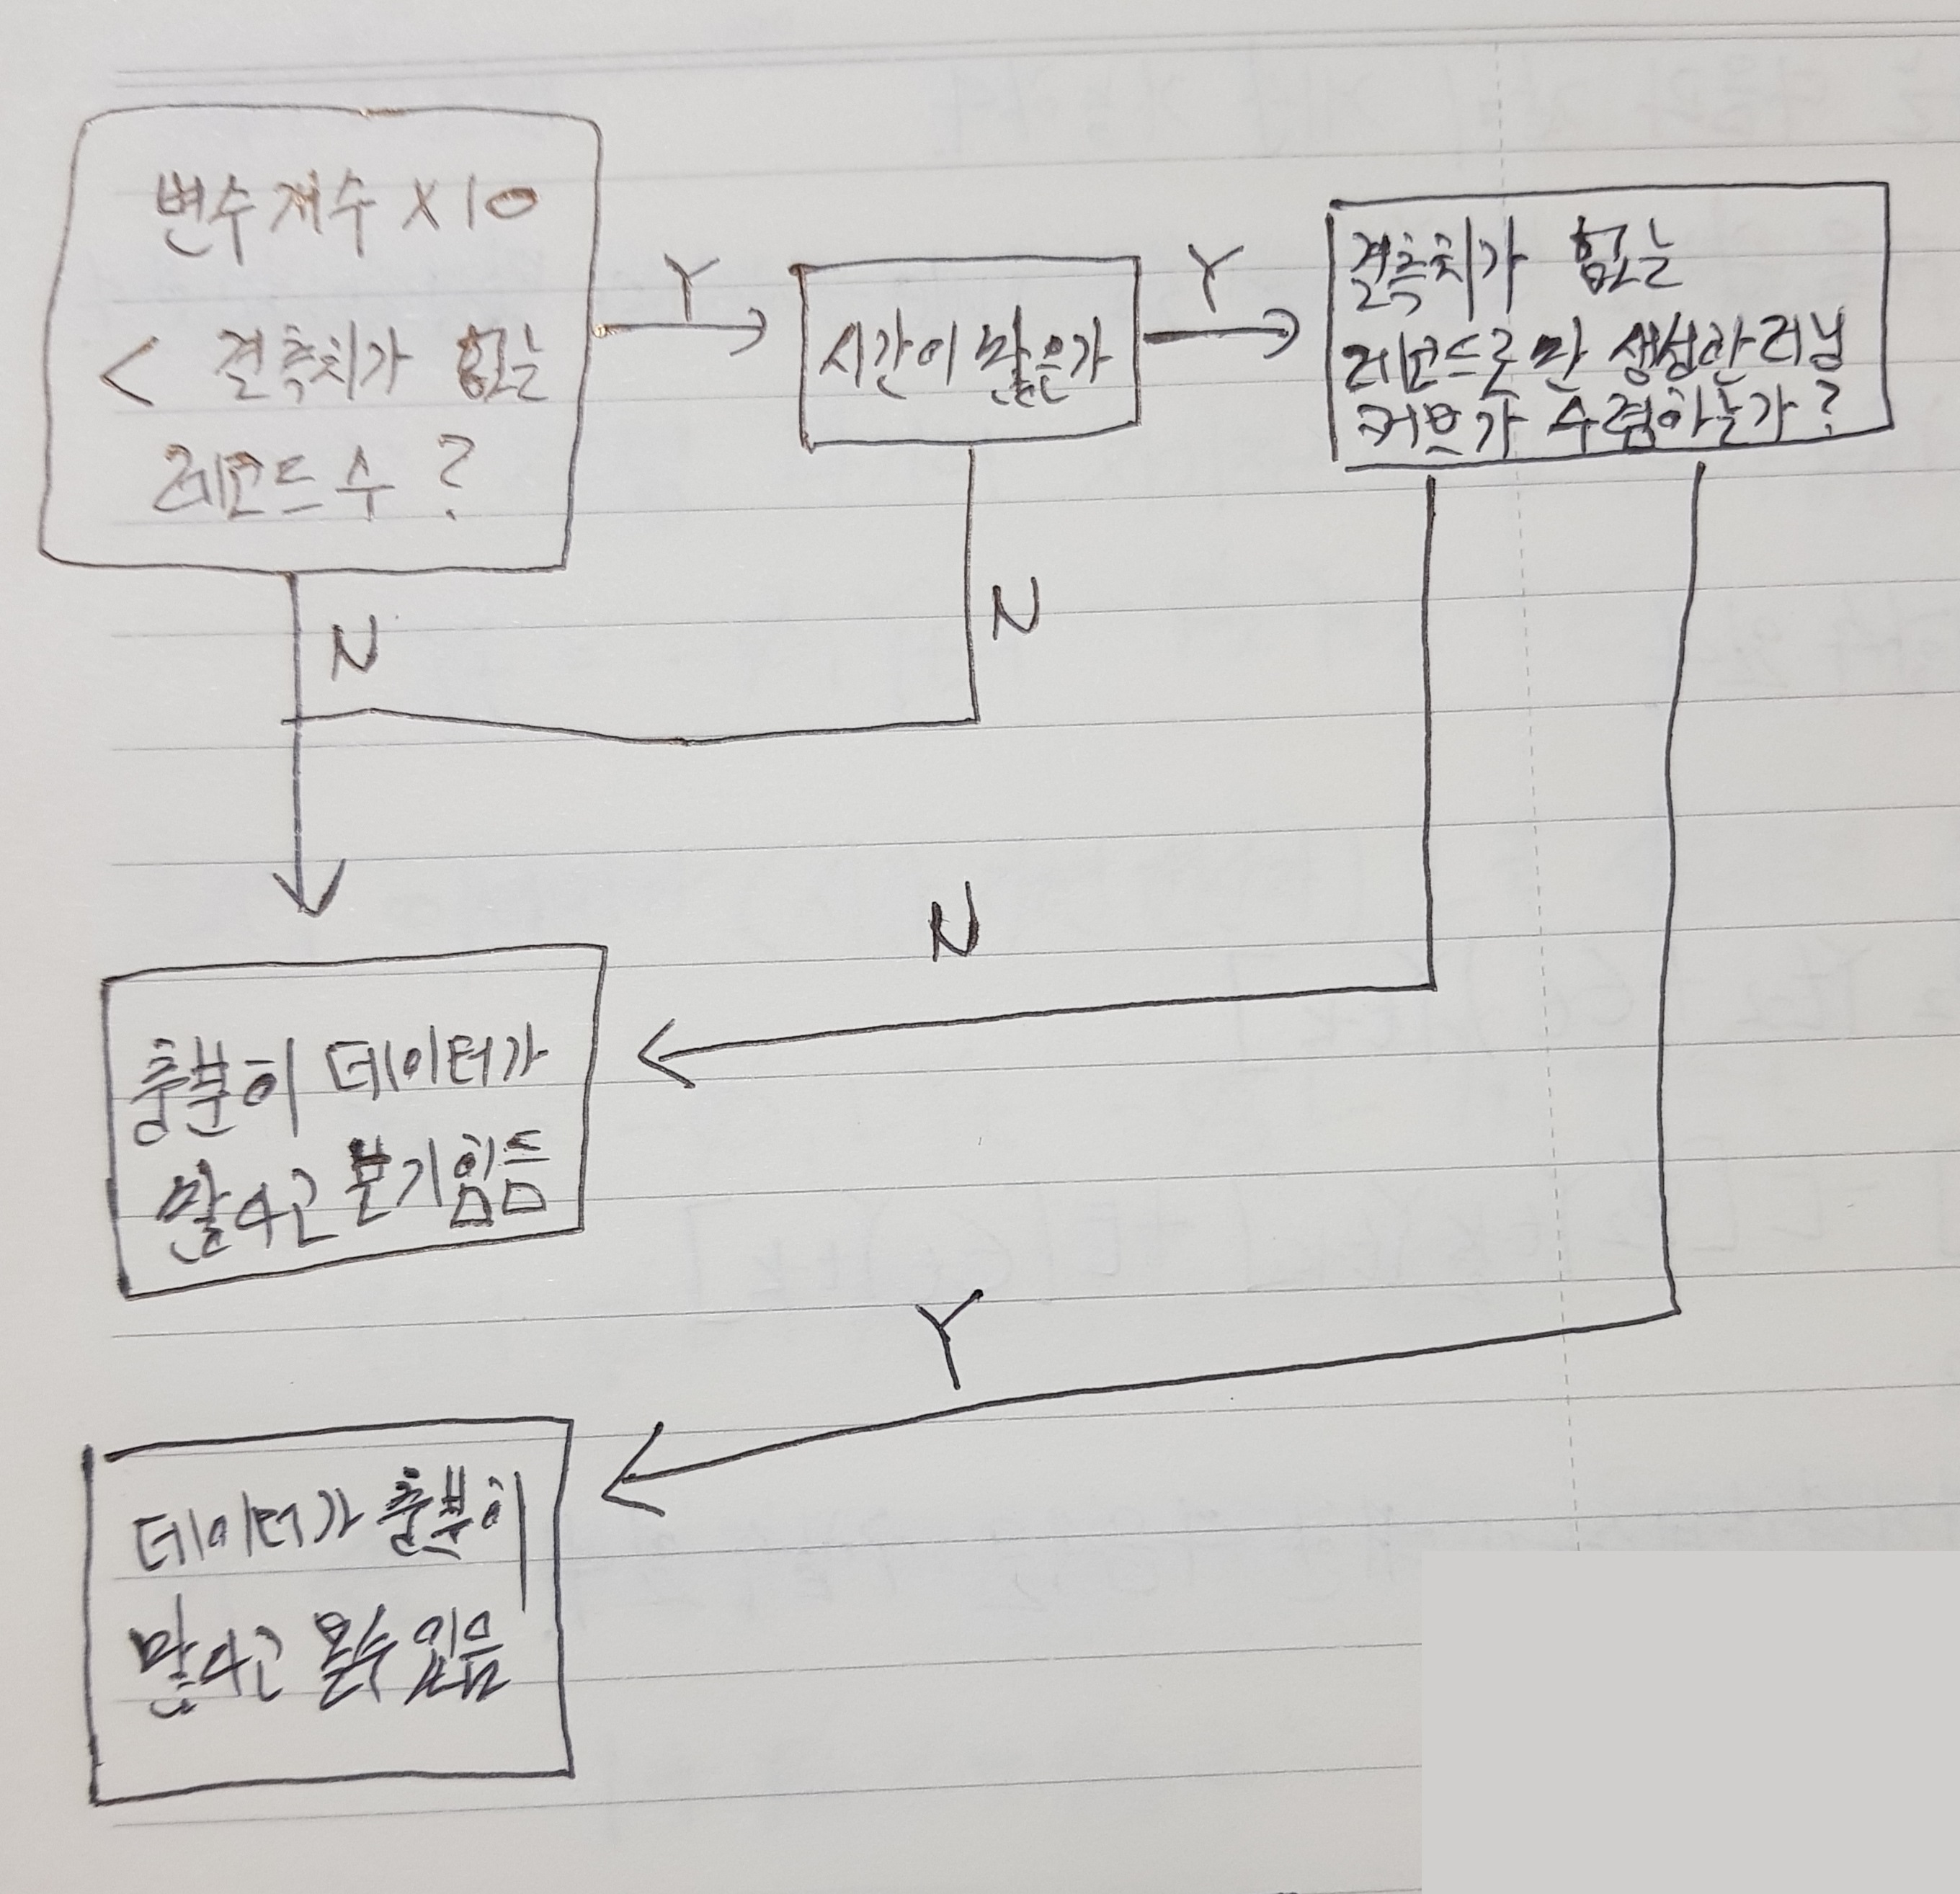 변수 개수 X10
< 결측치가 없는
레코드 수 ?
Y
시간이 많은가
Y
결측치가 없는
레코드로만 생성한 러닝
커브가 수렴하는가?
N
N
N
충분히 데이터가
많다고 보기 힘듬
Y
데이터가 충분히
많다고 볼수 있음